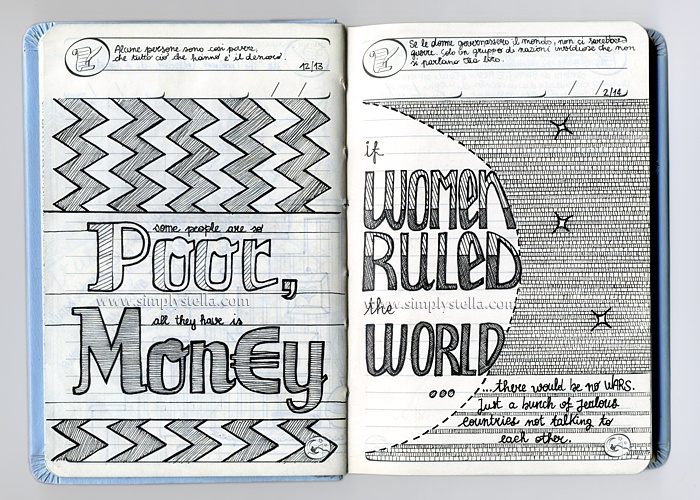 Alcune persone sono così povere,
che tutto ciò che hanno è il denaro.
12/13
some people are so
Poor,
www.simplystella.com
all they have is
Mon€y
Se le donne governassero il mondo, non ci sarebbero
guerre. Solo un gruppo di nazioni invidiose che non
si parlano tra loro.
2/14
if
WOMEN
RULED
www.simplystella.com
the
WORLD
...
...there would be no WARS.
Just a bunch of jealous
countries not talking to
each other.